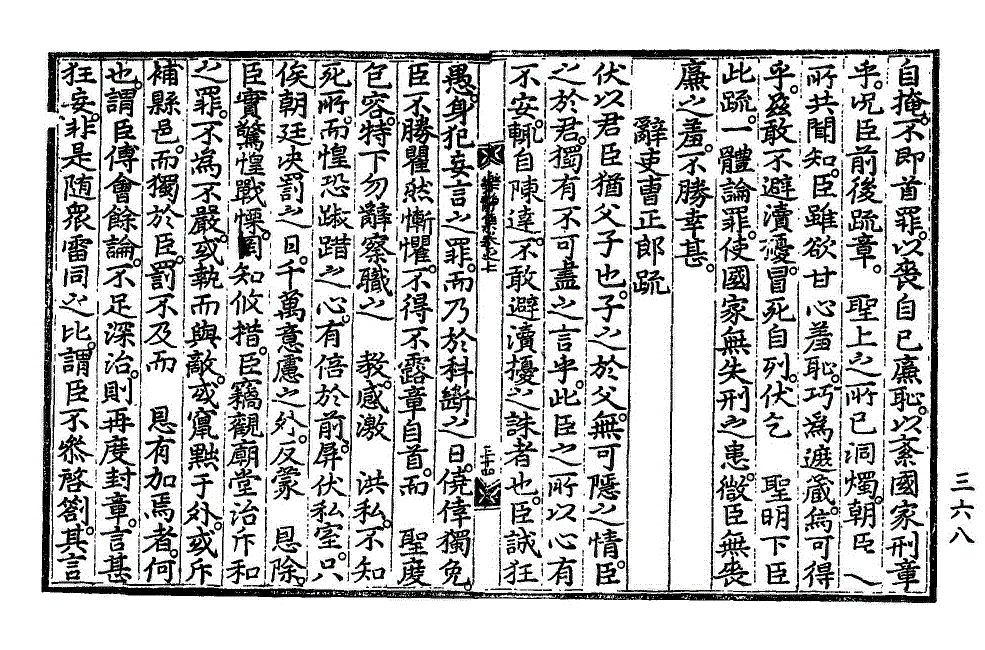 自掩。不卽首罪。以喪自己廉恥。以紊國家刑章
乎。况臣前後疏章。 聖上之所已洞燭。朝臣之
所共聞知。臣雖欲甘心羞恥。巧爲遮藏。焉可得
乎。玆敢不避瀆擾。冒死自列。伏乞 聖明下臣
此疏。一體論罪。使國家無失刑之患。微臣無喪
廉之羞。不勝幸甚。
辭吏曹正郎疏
伏以君臣猶父子也。子之於父。無可隱之情。臣
之於君。獨有不可盡之言乎。此臣之所以心有
不安。輒自陳達。不敢避瀆擾之誅者也。臣誠狂
愚。身犯妄言之罪。而乃於科斷之日。僥倖獨免。
臣不勝瞿然慚懼。不得不露章自首。而 聖度
包容。特下勿辭察職之 敎。感激 洪私。不知
死所。而惶恐踧踖之心。有倍於前。屛伏私室。只
俟朝廷決罰之日。千萬意慮之外。反蒙 恩除。
臣實驚惶戰慄。罔知攸措。臣竊觀廟堂治斥和
之罪。不爲不嚴。或執而與敵。或竄黜于外。或斥
補縣邑。而獨於臣。罰不及而 恩有加焉者。何
也。謂臣傅會餘論。不足深治。則再度封章。言甚
狂妄。非是隨衆雷同之比。謂臣不參啓箚。其言
三六八